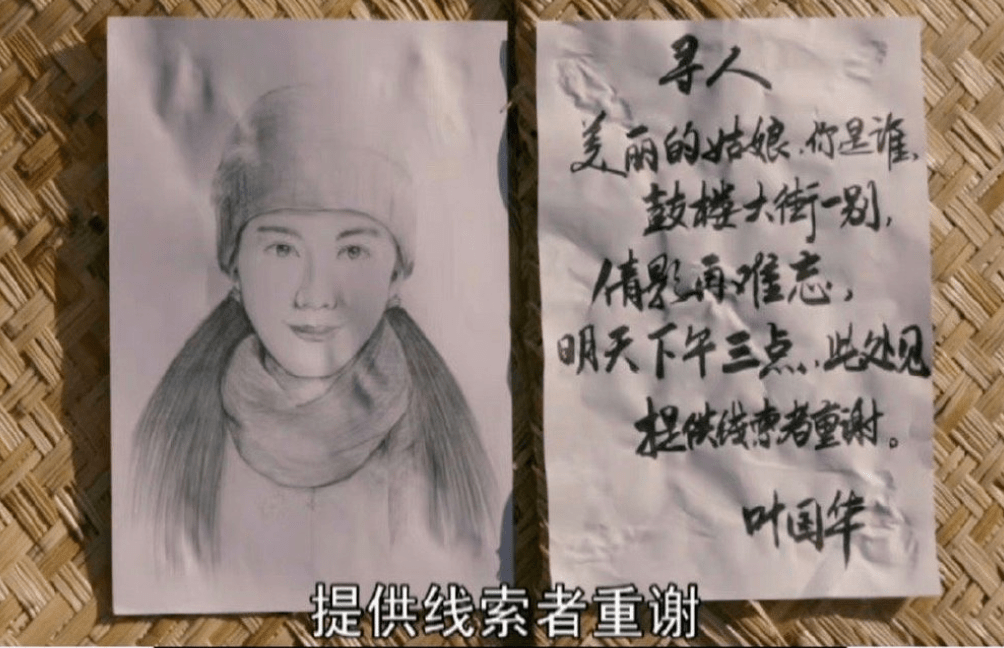 寻人
美丽的姑娘，你是谁，
鼓楼大街一别，
倩影再难忘，
明天下午三点，此处见
提供线索者重谢。
叶国华
提供线索者重谢